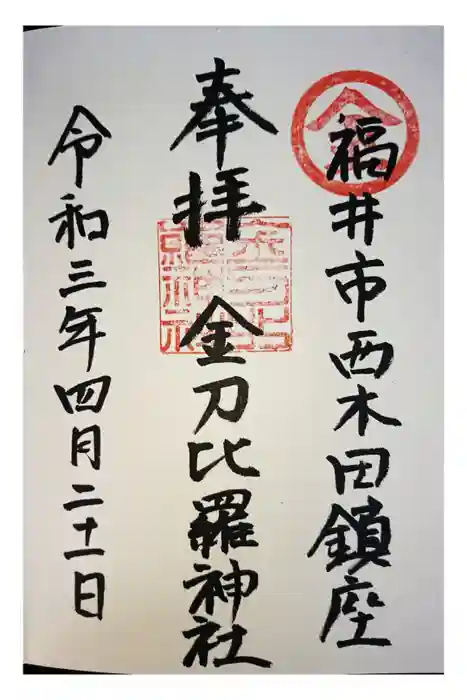 福井市西木田鎮座
奉拝
金刀比羅神社
令和三年四月二十一日